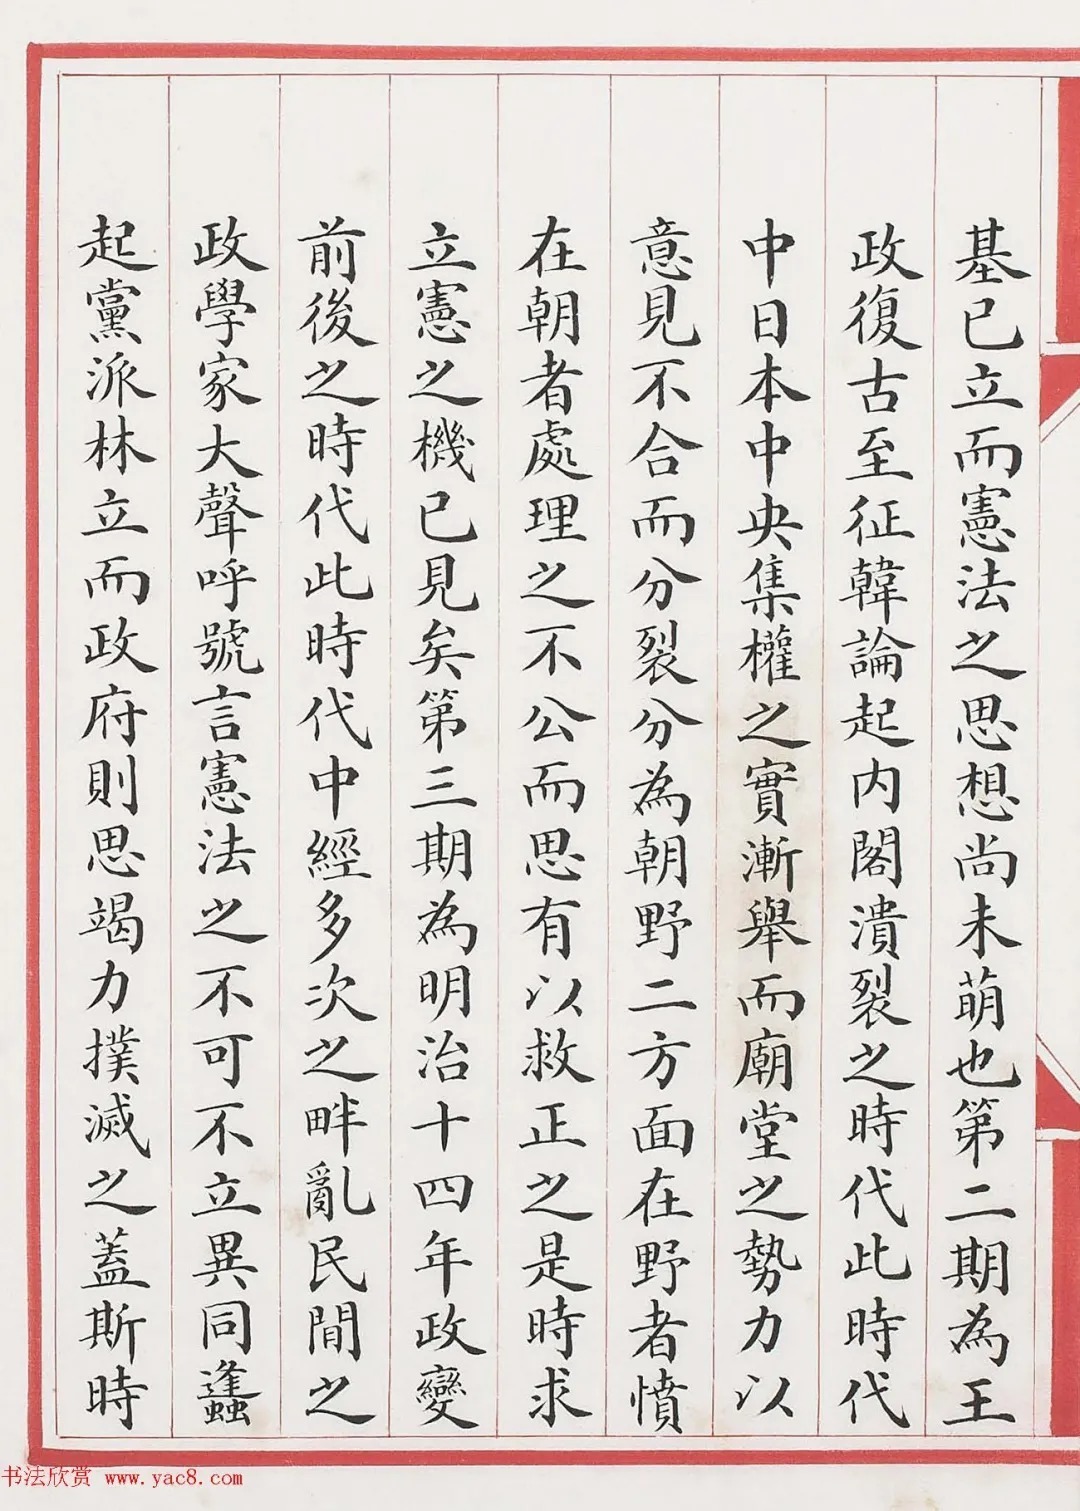 基已立而憲法之思想尚未萌也第二期為王
政復古至征韓論起内閣潰裂之時代此時代
中日本中央集權之實漸舉而廟堂之勢力以
意見不合而分裂分為朝野二方面在野者憤
在朝者處理之不公而思有以救正之是時求
立憲之機已見矣第三期為明治十四年政變
前後之時代此時代中經多次之畔亂民間之
政學家大聲呼號言憲法之不可不立異同蠭
起黨派林立而政府則思竭力撲滅之蓋斯時
书法欣赏 www.yac8.com